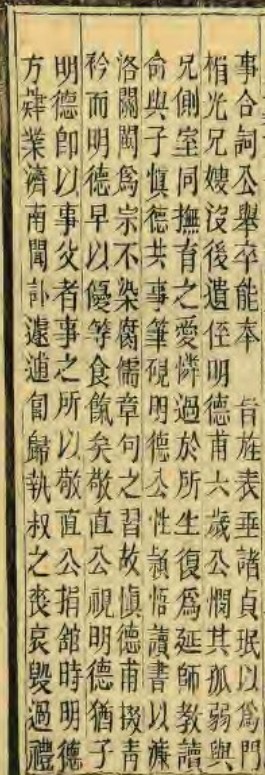 事合詞公舉卒能奉　旨旌表垂諸貞珉以爲門
楣光兄嫂沒後遺侄明德甫六歲公憫其孤弱與
兄側室同撫育之愛憐過於所生復爲延師教讀
命與子慎德共事筆硯明德公性穎悟讀書以濂
洛關閩爲宗不染腐儒章句之習故慎德甫掇青
衿而明德早以優等食餼矣敬直公視明德猶子
明德卽以事父者事之所以敬直公捐舘時明德
方肄業濟南聞訃遽逋匍歸執叔之喪哀毁過禮